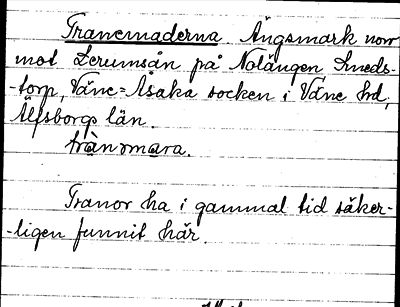 Tranemaderna. Ängsmark nov
mot Lerumsån på Nolängen, Smeds-
-torp, Väne-Åsaka socken i Väne hd,
Älfsborgs län.
trànmara.
Tranor ha i gammal tid säker-
-ligen funnit här.